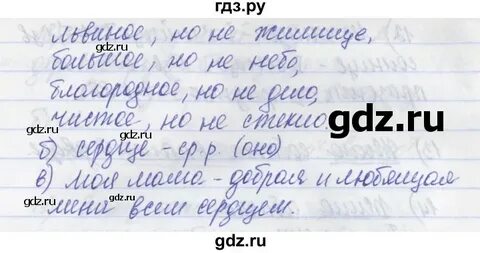 гдз.ру
львиное, но не жилище,
большое, но не небо,
благородное, но не дело,
чистое, но не стекло.
gdz.ru
б) сердце - ср.р. (оно)
в) моя мама - добрая и любящая
меня всем сердцем.
gdz.ru
gdz.ru